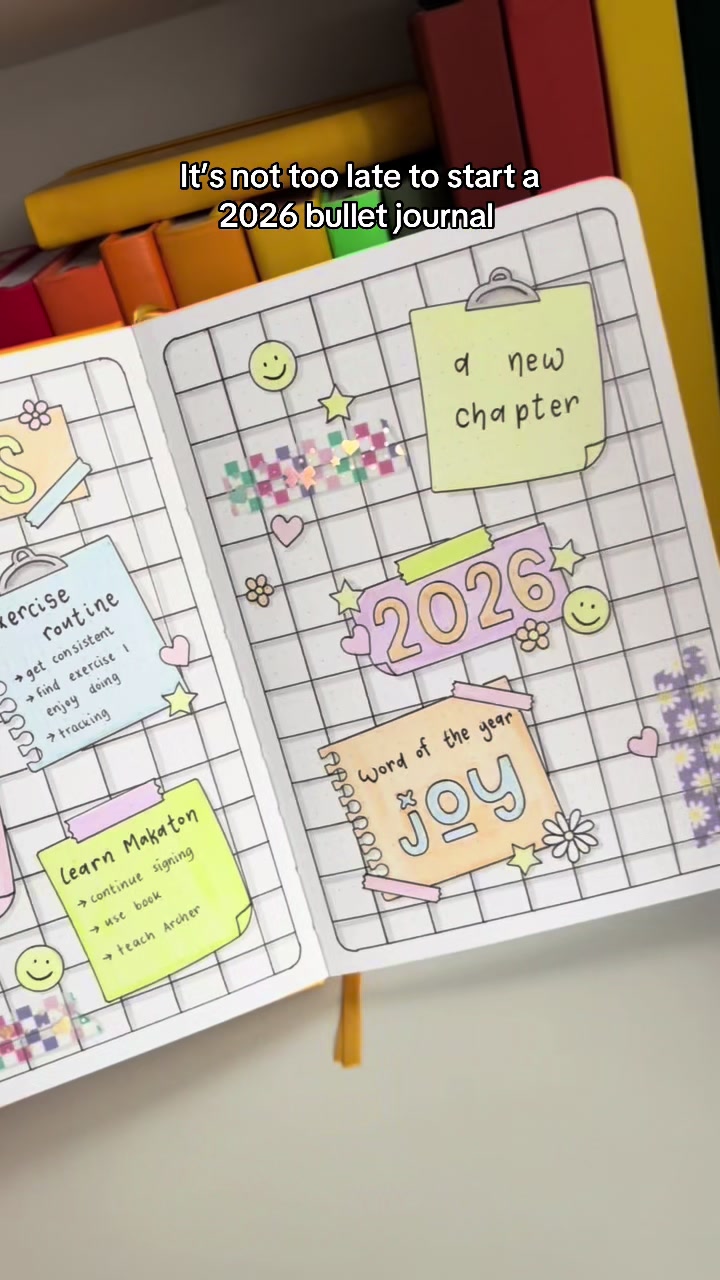 It's not too late to start a
2026 bullet journal
S
exercise
routine
→ get consistent
→ find exercise I
enjoy doing
→ tracking
Learn Makaton
→ continue signing
→ use book
→ teach Archer
a new
chapter
2026
word of the year
joy